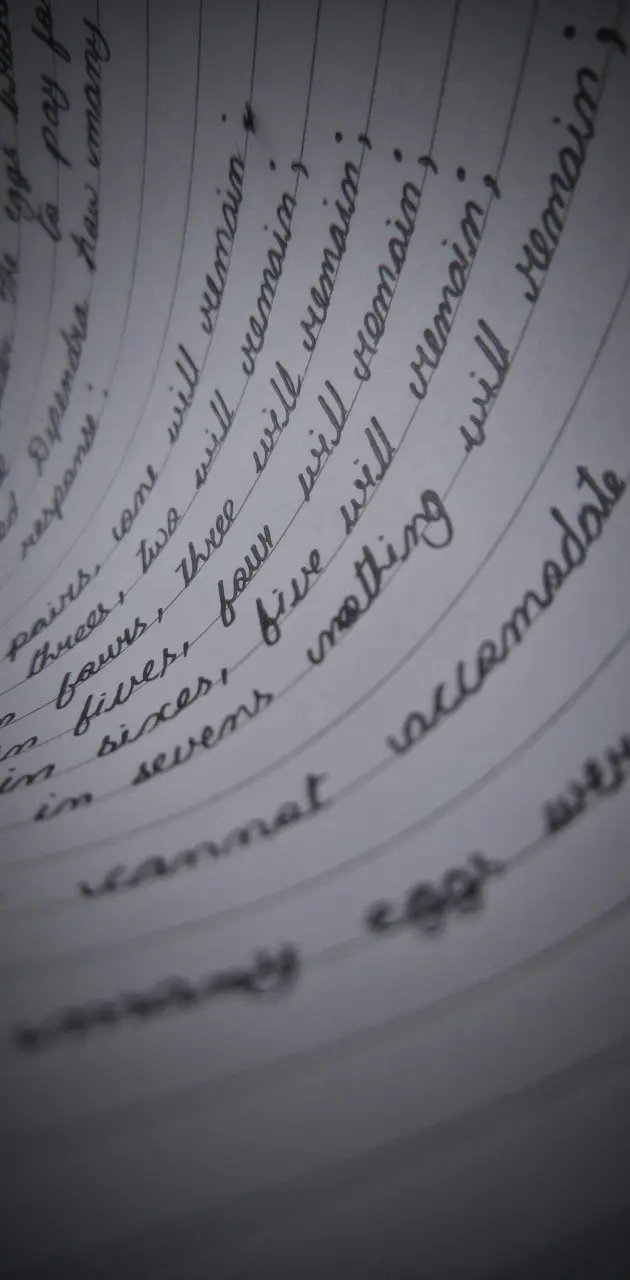 the eggs
to pay fo
Dipendra how many
response:
pairs, one will remain;
threes, two will remain;
fours, three will remain;
in fives, four will remain;
in sixes, five will remain;
in sevens nothing will remain;
cannot accomodate
many eggs wer